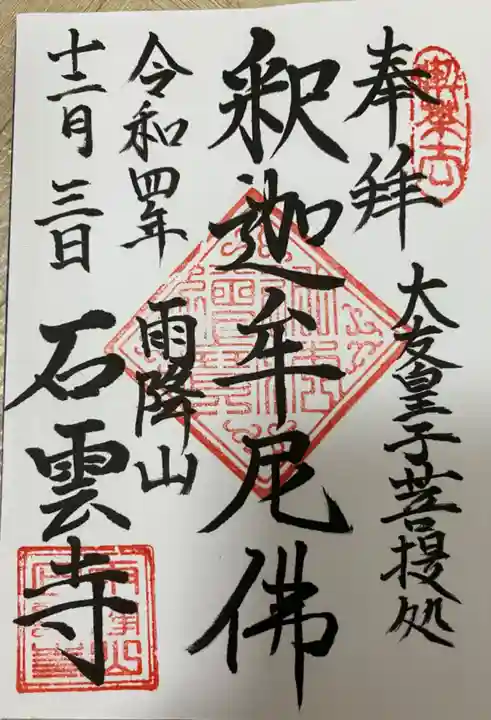 奉拜
大友皇子菩提処
釈迦牟尼佛
令和四年
雨降山
十二月三日
石雲寺